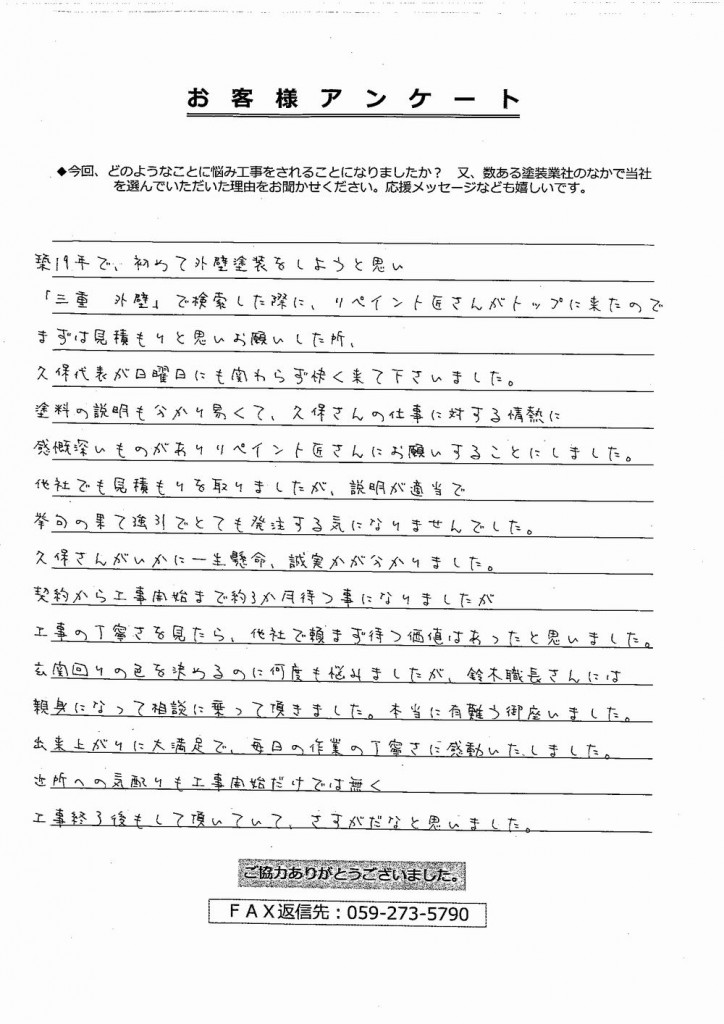 お客様アンケート
◆今回、どのようなことに悩み工事をされることになりましたか？　又、数ある塗装業社のなかで当社
を選んでいただいた理由をお聞かせください。応援メッセージなども嬉しいです。
築19年で、初めて外壁塗装をしようと思い
「三重　外壁」で検索した際に、リペイント匠さんがトップに来たので
まずは見積もりと思いお願いした所、
久保代表が日曜日にも関わらず快く来て下さいました。
塗料の説明も分かり易くて、久保さんの仕事に対する情熱に
感慨深いものがありリペイント匠さんにお願いすることにしました。
他社でも見積もりを取りましたが、説明が適当で
挙句の果て強引でとても発注する気になりませんでした。
久保さんがいかに一生懸命、誠実かが分かりました。
契約から工事開始まで約3か月待つ事になりましたが
工事の丁寧さを見たら、他社で頼まず待つ価値はあったと思いました。
玄関回りの色を決めるのに何度も悩みましたが、鈴木職長さんには
親身になって相談に乗って頂きました。本当に有難う御座いました。
出来上がりに大満足で、毎日の作業の丁寧さに感動いたしました。
近所への気配りも工事開始だけでは無く
工事終了後もして頂いていて、さすがだなと思いました。
ご協力ありがとうございました。
ＦＡＸ返信先：059-273-5790